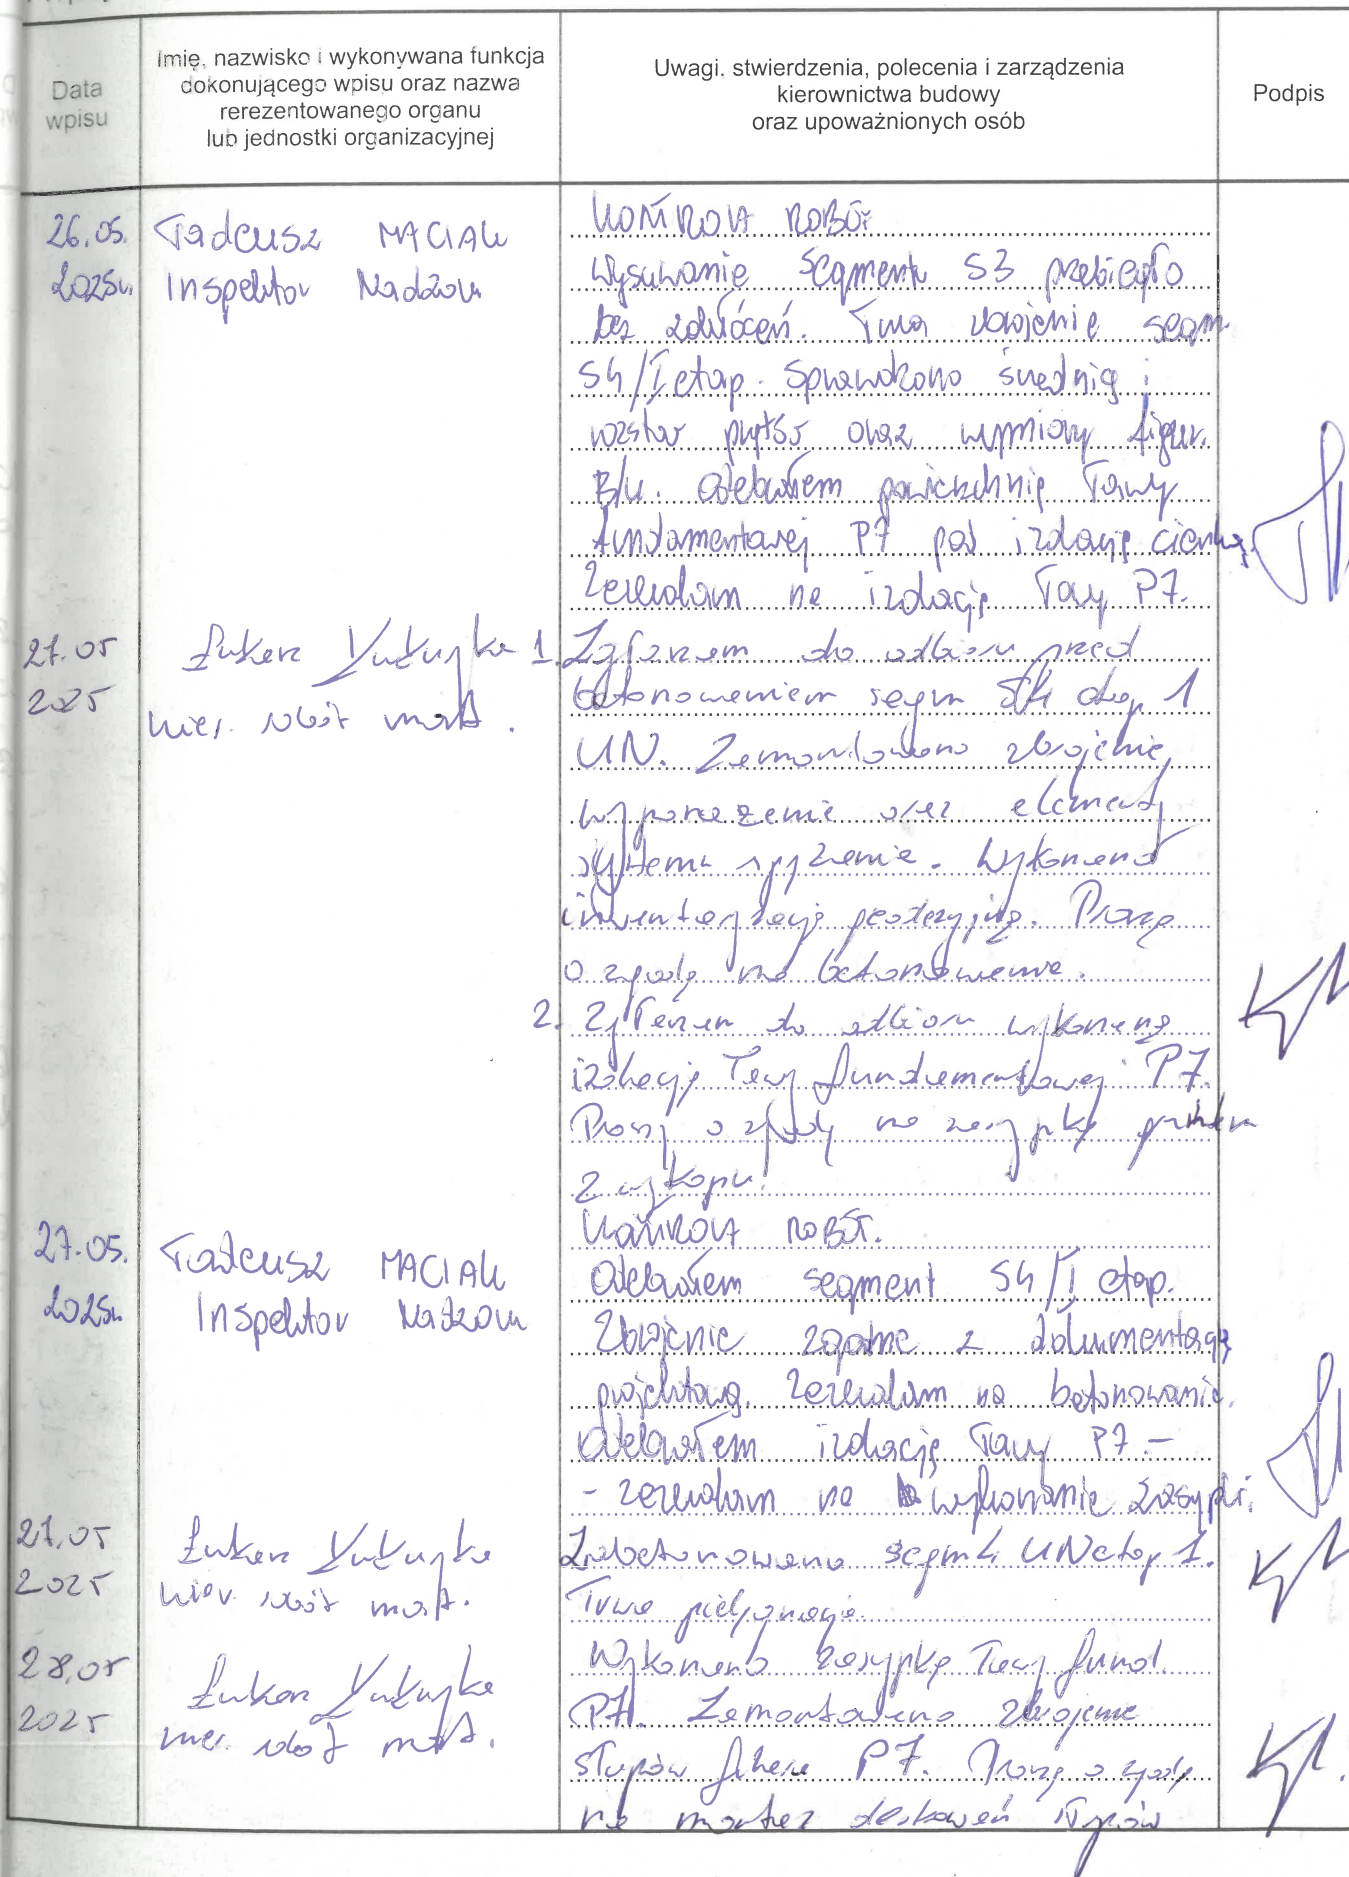 Data
wpisu
Imię, nazwisko i wykonywana funkcja
dokonującego wpisu oraz nazwa
rerezentowanego organu
lub jednostki organizacyjnej
Uwagi, stwierdzenia, polecenia i zarządzenia
kierownictwa budowy
oraz upoważnionych osób
Podpis
26.05.
2025r.
Tadeusz MACIAK
Inspektor Nadzoru
KONTROLA ROBÓT
Wysuwanie segmentu S3 przebiegło
bez zakłóceń. Trwa zbrojenie segm.
S4/I etap. Sprawdzono średnię i
rozstaw prętów oraz wymiary figur.
B/u. Odebrałem powierzchnię ławy
fundamentowej P7 pod izolację cienką.
Zezwalam na izolację ławy P7.
27.05
2025
Łukasz
kier. robót most.
1. Zgłaszam do odbioru przed
betonowaniem segm S4 etap 1
UN. Zamontowano zbrojenie,
wyposażenie oraz elementy
systemu sprężenia. Wykonano
inwentaryzację geodezyjną. Proszę
o zgodę na betonowanie.
2. Zgłaszam do odbioru wykonaną
izolację ławy fundamentowej P7.
Proszę o zgodę na zasypkę gruntem
z wykopu.
27.05.
2025r.
Tadeusz MACIAK
Inspektor Nadzoru
KONTROLA ROBÓT.
Odebrałem segment S4/I etap.
Zbrojenie zgodne z dokumentacją
projektową. Zezwalam na betonowanie.
Odebrałem izolację ławy P7. –
– zezwalam na wykonanie zasypki.
27.05
2025
Łukasz
kier. robót most.
Zabetonowano segm 4 UN etap 1.
Trwa pielęgnacja.
28.05
2025
Łukasz
kier. robót most.
Wykonano zasypkę ławy fund.
P7. Zamontowano zbrojenie
słupów filara P7. Proszę o zgodę
na montaż deskowań słupów